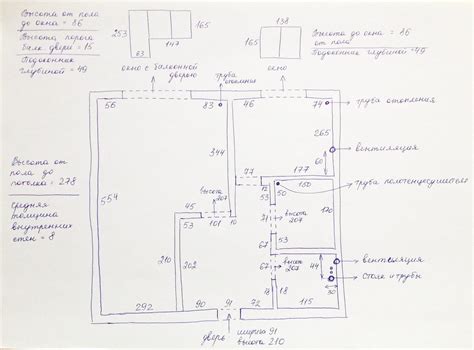 Высота от пола
до окна = 86
Высота порога
балк. двери = 15
Подоконник
глубиной = 49
253
165
147
83
окно с балконной
дверью
138
165
окно
Высота до окна = 86
от пола
Подоконник
глубиной = 49
труба
отопления
56
83
46
74
труба отопления
265
344
вентиляция
60
177
77
12
53
50
150
труба полотенцесушителя
Высота от
пола до
потолка = 278
средняя
толщина
внутренних
стен = 8
554
высота
207
45
53
101
10
91
высота
207
170
53
210
202
67
67
высота
207
44
вентиляция
стояк и трубы
30
18
18
115
292
90
91
72
дверь
ширина 91
высота 210